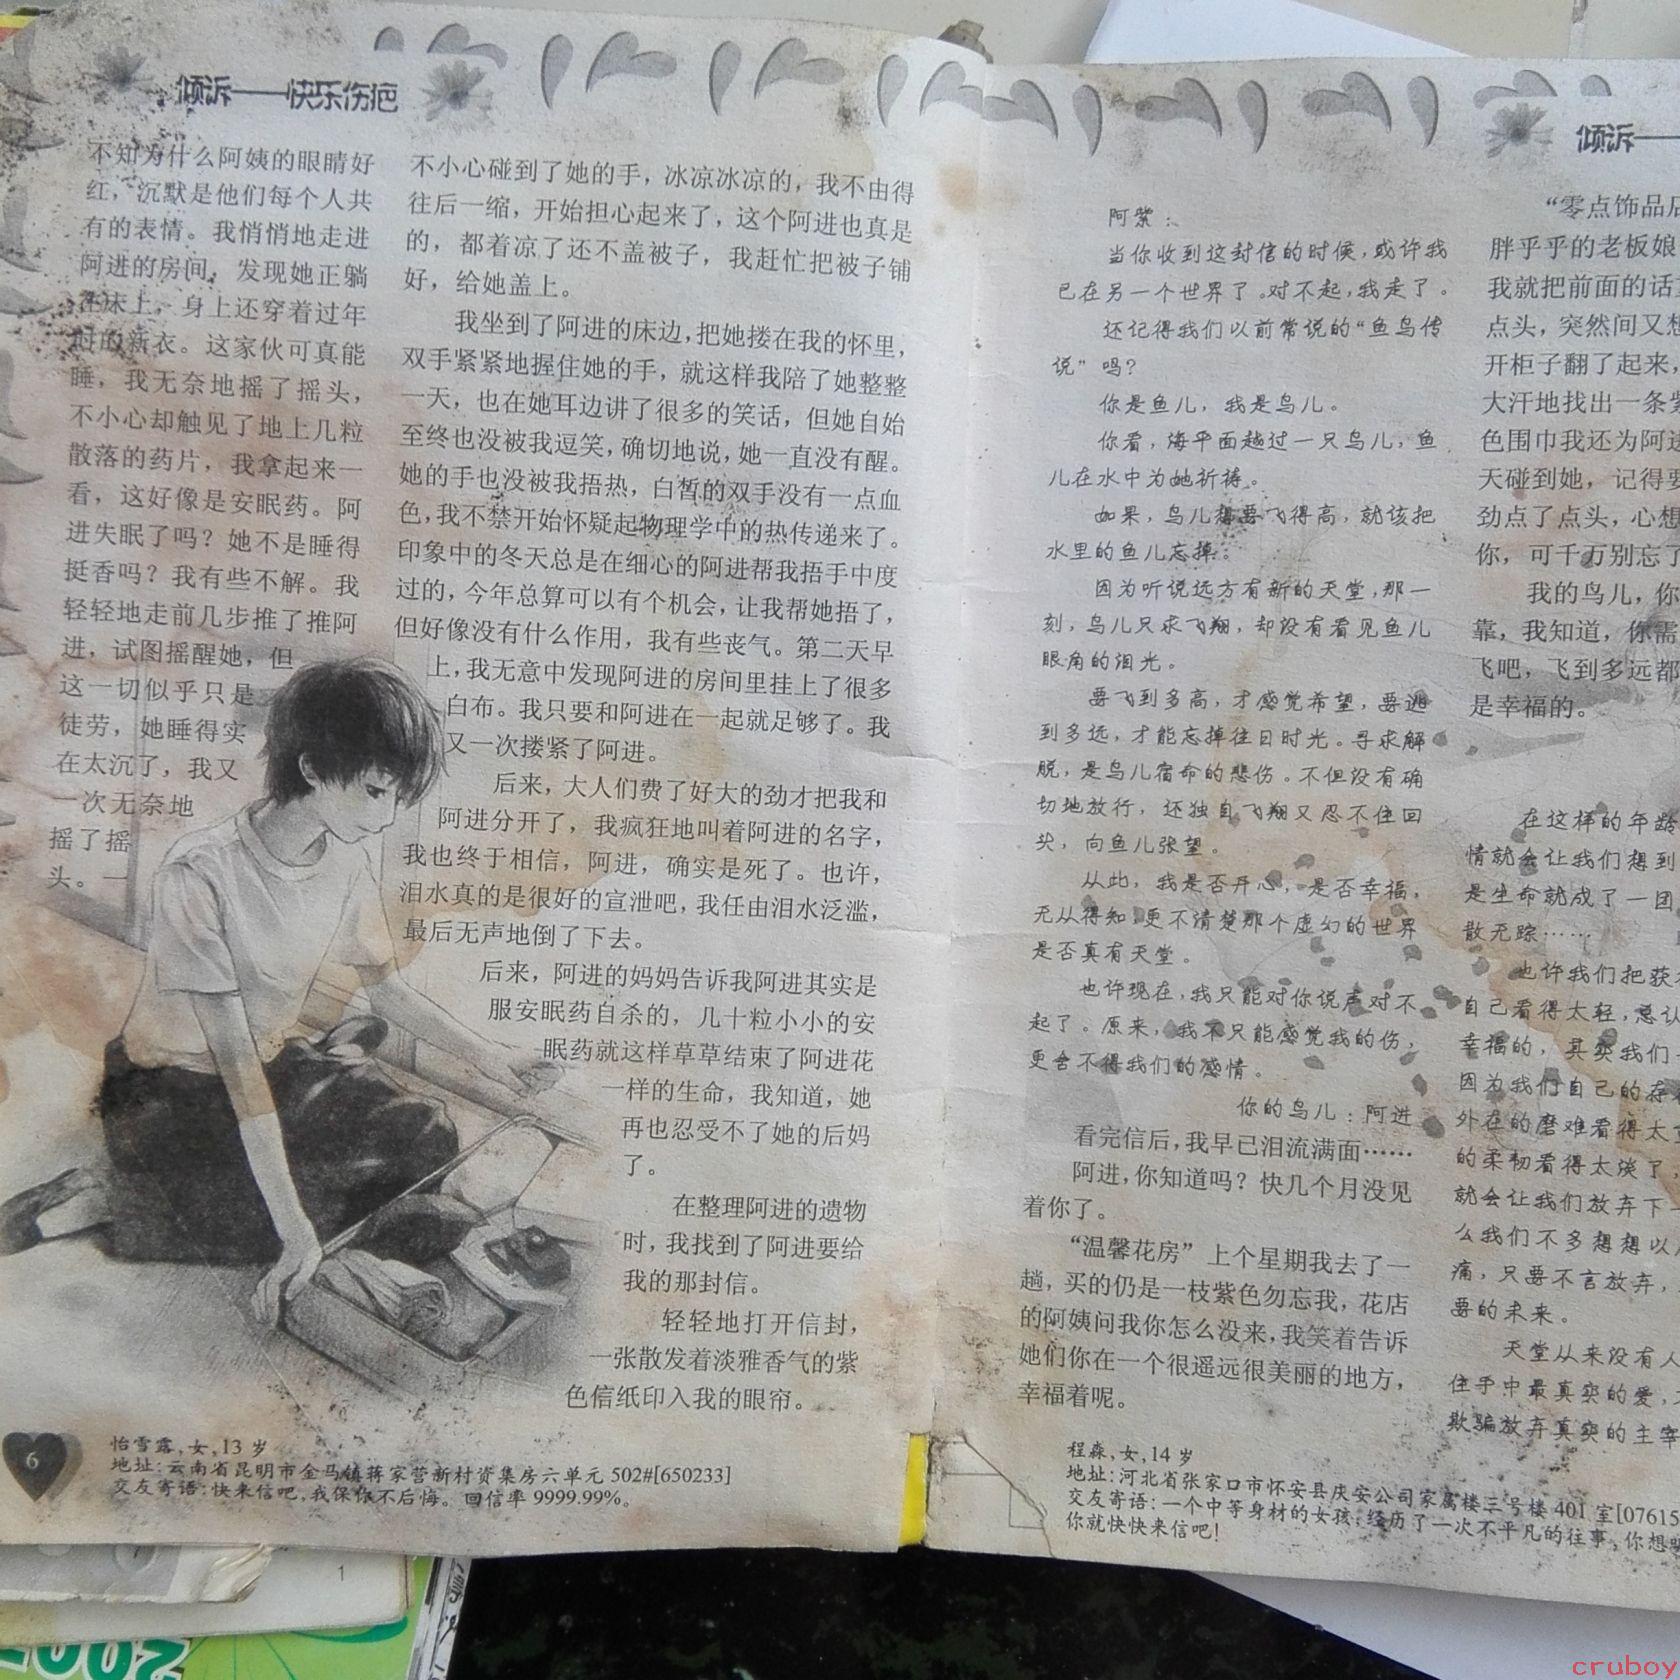 倾诉——快乐伤疤
不知为什么阿姨的眼睛好
红，沉默是他们每个人共
有的表情。我悄悄地走进
阿进的房间，发现她正躺
在床上，身上还穿着过年
时的新衣。这家伙可真能
睡，我无奈地摇了摇头，
不小心却触见了地上几粒
散落的药片，我拿起来一
看，这好像是安眠药。阿
进失眠了吗？她不是睡得
挺香吗？我有些不解。我
轻轻地走前几步推了推阿
进，试图摇醒她，但
这一切似乎只是
徒劳，她睡得实
在太沉了，我又
一次无奈地
摇了摇
头。一
不小心碰到了她的手，冰凉冰凉的，我不由得
往后一缩，开始担心起来了，这个阿进也真是
的，都着凉了还不盖被子，我赶忙把被子铺
好，给她盖上。
我坐到了阿进的床边，把她搂在我的怀里，
双手紧紧地握住她的手，就这样我陪了她整整
一天，也在她耳边讲了很多的笑话，但她自始
至终也没被我逗笑，确切地说，她一直没有醒。
她的手也没被我捂热，白皙的双手没有一点血
色，我不禁开始怀疑起物理学中的热传递来了。
印象中的冬天总是在细心的阿进帮我捂手中度
过的，今年总算可以有个机会，让我帮她捂了，
但好像没有什么作用，我有些丧气。第二天早
上，我无意中发现阿进的房间里挂上了很多
白布。我只要和阿进在一起就足够了。我
又一次搂紧了阿进。
后来，大人们费了好大的劲才把我和
阿进分开了，我疯狂地叫着阿进的名字，
我也终于相信，阿进，确实是死了。也许，
泪水真的是很好的宣泄吧，我任由泪水泛滥，
最后无声地倒了下去。
后来，阿进的妈妈告诉我阿进其实是
服安眠药自杀的，几十粒小小的安
眠药就这样草草结束了阿进花
一样的生命，我知道，她
再也忍受不了她的后妈
了。
在整理阿进的遗物
时，我找到了阿进要给
我的那封信。
轻轻地打开信封，
一张散发着淡雅香气的紫
色信纸印入我的眼帘。
6
怡雪露，女，13岁
地址：云南省昆明市金马镇蒋家营新村资集房六单元502#[650233]
交友寄语：快来信吧，我保你不后悔。回信率9999.99%。
倾诉—
阿紫：
当你收到这封信的时候，或许我
已在另一个世界了。对不起，我走了。
还记得我们以前常说的“鱼鸟传
说”吗？
你是鱼儿，我是鸟儿。
你看，海平面越过一只鸟儿，鱼
儿在水中为她祈祷。
如果，鸟儿想要飞得高，就该把
水里的鱼儿忘掉。
因为听说远方有新的天堂，那一
刻，鸟儿只求飞翔，却没有看见鱼儿
眼角的泪光。
要飞到多高，才感觉希望，要逃
到多远，才能忘掉往日时光。寻求解
脱，是鸟儿宿命的悲伤。不但没有确
切地放行，还独自飞翔又忍不住回
头，向鱼儿张望。
从此，我是否开心，是否幸福，
无从得知，更不清楚那个虚幻的世界
是否真有天堂。
也许现在，我只能对你说声对不
起了。原来，我不只能感觉我的伤，
更舍不得我们的感情。
你的鸟儿：阿进
看完信后，我早已泪流满面……
阿进，你知道吗？快几个月没见
着你了。
“温馨花房”上个星期我去了一
趟，买的仍是一枝紫色勿忘我，花店
的阿姨问我你怎么没来，我笑着告诉
她们你在一个很遥远很美丽的地方，
幸福着呢。
“零点饰品店
胖乎乎的老板娘
我就把前面的话
点头，突然间又想
开柜子翻了起来，
大汗地找出一条紫
色围巾我还为阿进
天碰到她，记得要
劲点了点头，心想
你，可千万别忘了
我的鸟儿，你
靠，我知道，你需
飞吧，飞到多远都
是幸福的。
在这样的年龄
情就会让我们想到
是生命就成了一团
散无踪……
也许我们把获
自己看得太轻，总认
幸福的，其实我们
因为我们自己的存
外在的磨难看得太
的柔韧看得太淡了，
就会让我们放弃下一
么我们不多想想以
痛，只要不言放弃，
要的未来。
天堂从来没有人
住手中最真实的爱，
欺骗放弃真实的主宰
程森，女，14岁
地址：河北省张家口市怀安县庆安公司家属楼三号楼401室[07615
交友寄语：一个中等身材的女孩，经历了一次不平凡的往事，你想
你就快快来信吧！
1
cruboy